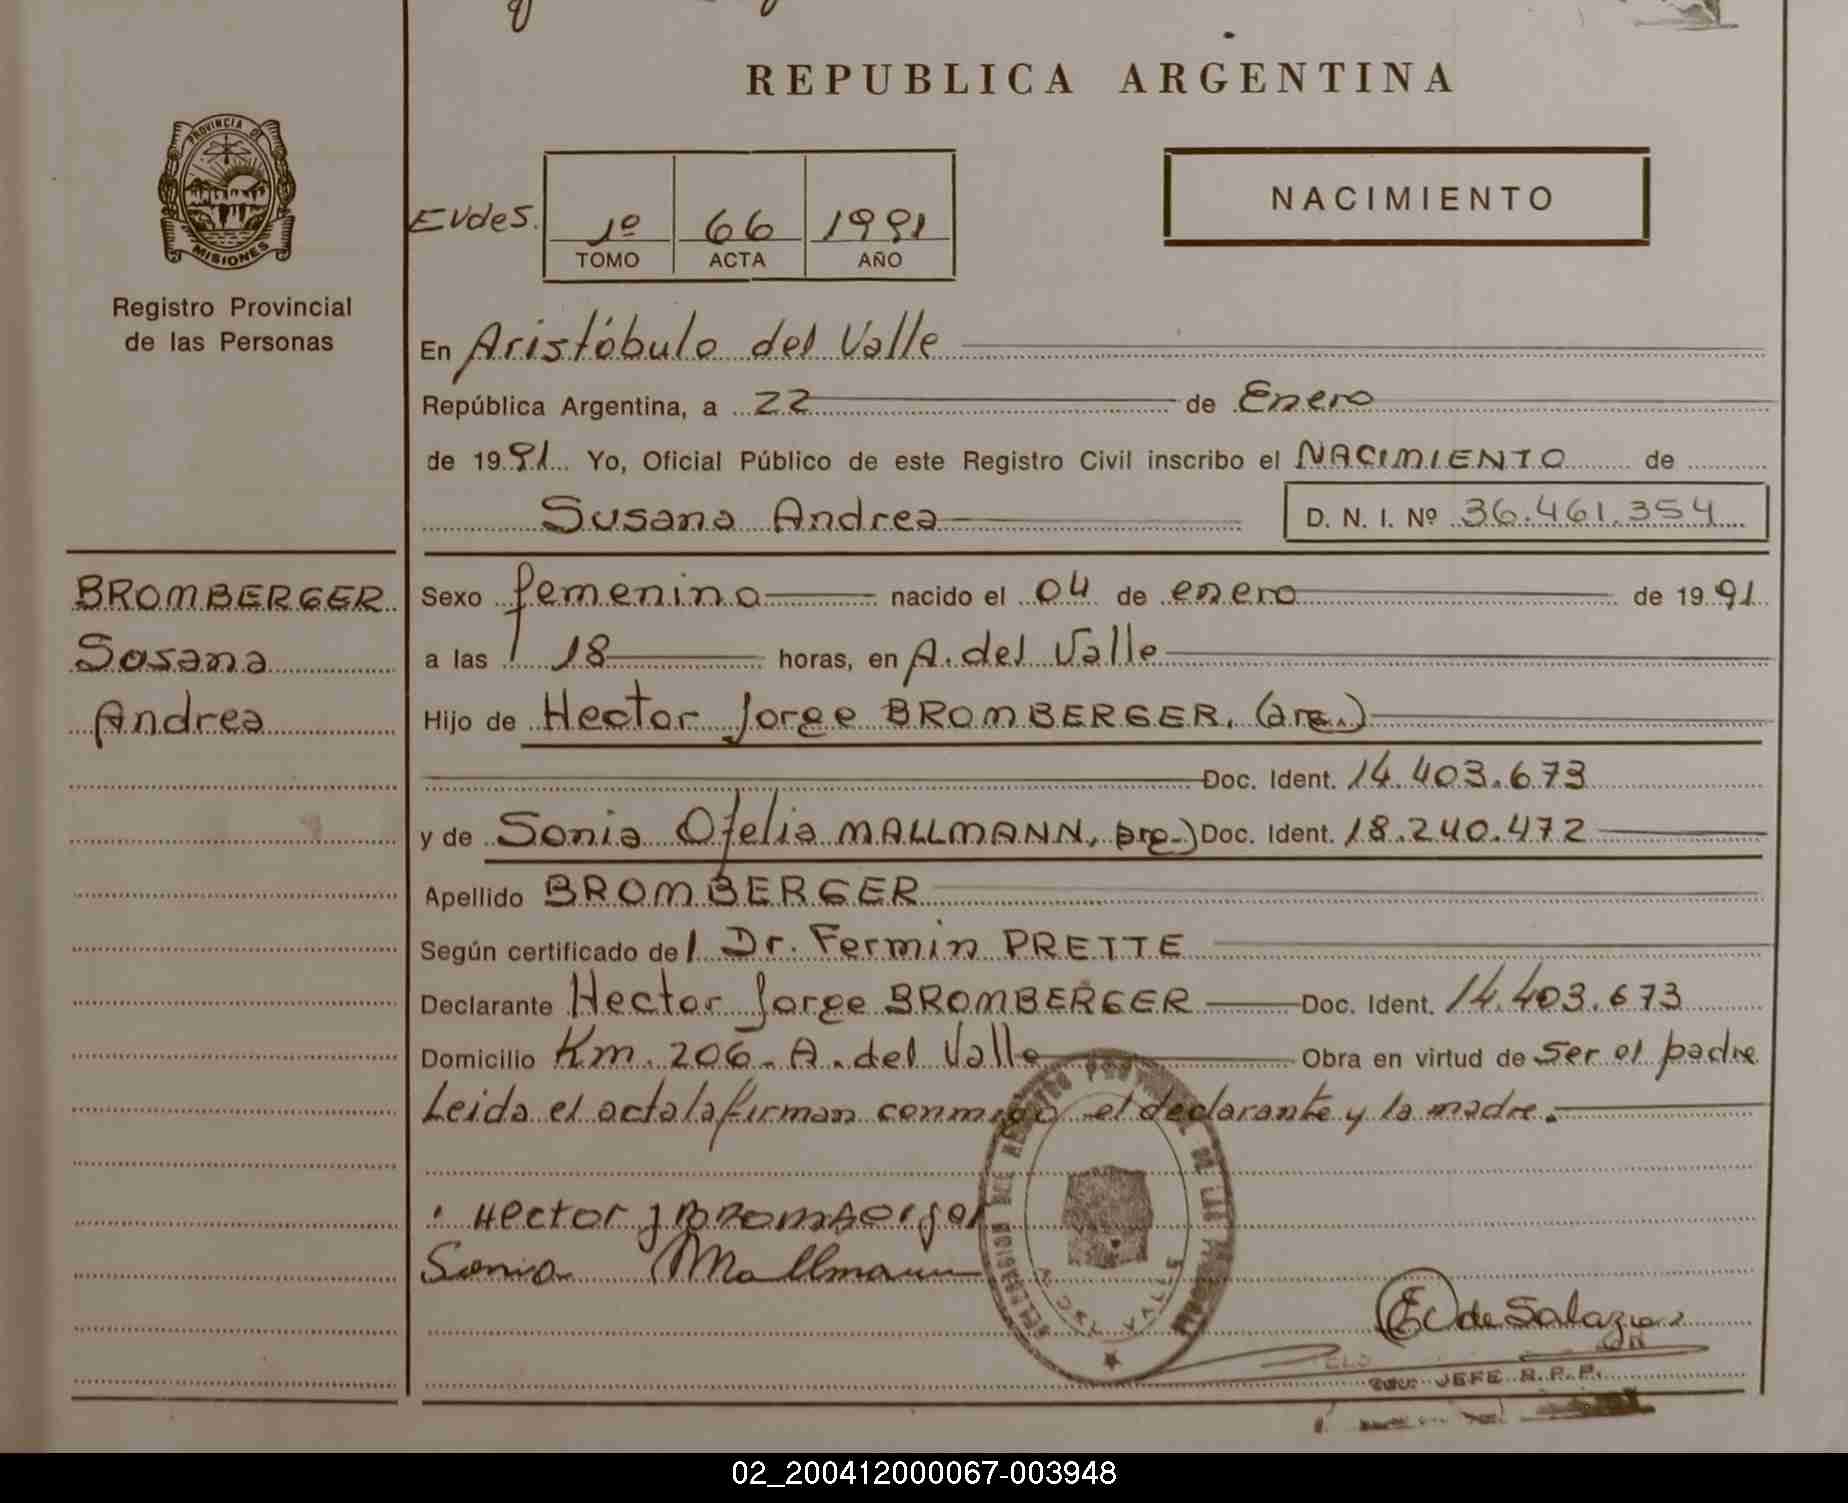 REPUBLICA ARGENTINA
PROVINCIA DE
MISIONES
Registro Provincial
de las Personas
Evdes.
1º 66 1991
TOMO ACTA AÑO
NACIMIENTO
En Aristóbulo del Valle
República Argentina, a 22 de Enero
de 1991 Yo, Oficial Público de este Registro Civil inscribo el NACIMIENTO de
Susana Andrea D. N. I. Nº 36.461.354
BROMBERGER
Susana
Andrea
Sexo femenino nacido el 04 de enero de 1991
a las 18 horas, en A. del Valle
Hijo de Hector Jorge BROMBERGER. (arg.)
Doc. Ident. 14.403.673
y de Sonia Ofelia MALLMANN, arg.) Doc. Ident. 18.240.472
Apellido BROMBERGER
Según certificado del Dr. Fermin PRETTE
Declarante Hector Jorge BROMBERGER Doc. Ident. 14.403.673
Domicilio Km. 206. A. del Valle Obra en virtud de ser el padre
Leida el acta la firman conmigo el declarante y la madre.
Hector J Bromberger
Sonia Mallmann
VALLE
EC de Salazar
JEFE R.P.P.
02_200412000067-003948